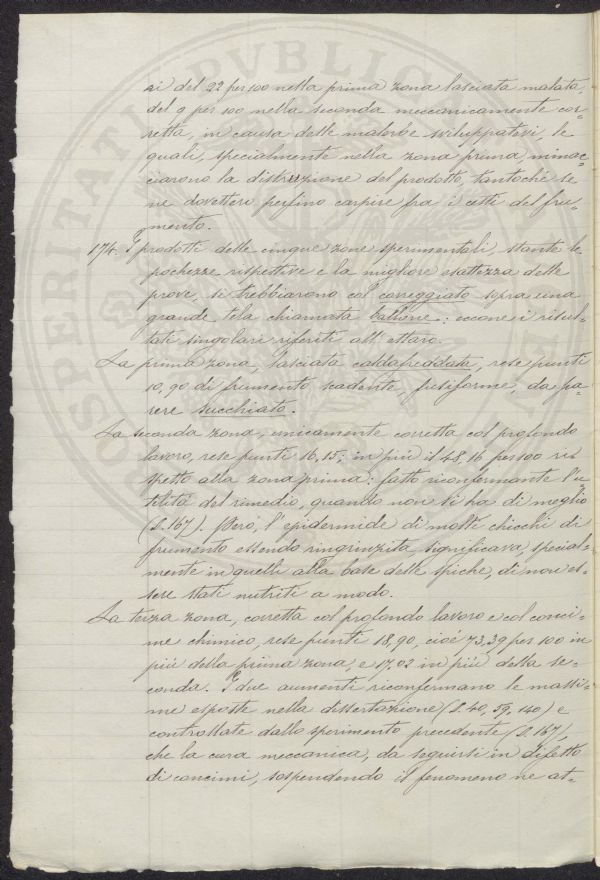 si del 22 per 100 nella prima zona lasciata malata,
del 9 per 100 nella seconda meccanicamente cor=
retta, in causa delle malerbe sviluppatesi, le
quali, specialmente nella zona prima, minac=
ciarono la distruzione del prodotto, tantochè se
ne dovettero perfino carpire fra i cetti del fru=
mento.
174. I prodotti delle cinque zone sperimentali, stante le
pochezze rispettive e la migliore esattezza delle
prove, si trebbiarono col correggiato sopra una
grande tela chiamata ballone: eccone i risul=
tati singolari riferiti all'ettaro.
La prima zona, lasciata caldafreddata, rese punti
10,90 di frumento scadente, fusiforme, da pa=
rere succhiato.
La seconda zona, unicamente corretta col profondo
lavoro, rese punti 16,15; in più il 48,16 per 100 ris
petto alla zona prima: fatto riconfermante l'u=
tilità del rimedio, quando non si ha di meglio
(§. 167). Però, l'epidermide di molti chicchi di
frumento essendo ringrinzita, significava, special=
mente in quelli alla base delle spiche, di non es=
sere stati nutriti a modo.
La terza zona, corretta col profondo lavoro e col conci=
me chimico, rese punti 18,90, cioè 73,39 per 100 in
più della prima zona, e 17,02 in più della se=
conda. I due aumenti riconfermano le massi=
me esposte nella dissertazione (§. 40, 59, 140) e
controllate dallo sperimento precedente (§. 167),
che la cura meccanica, da seguirsi in difetto
di concimi, sospendendo il fenomeno ne at=